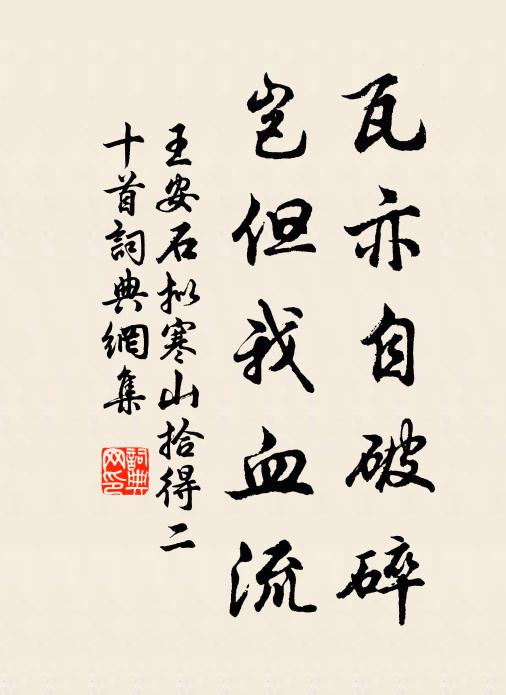 瓦亦自破碎
岂但我血流
王安石拟寒山拾得二
十首詞典網集
詞典
网印